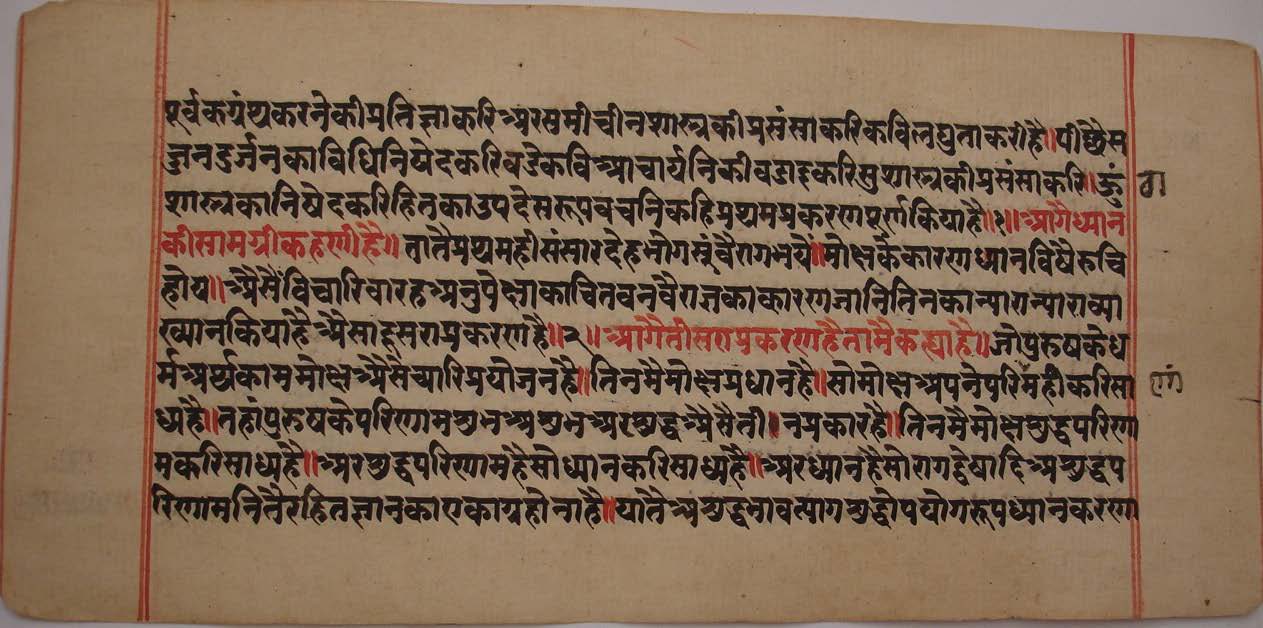 पूर्वकग्रंथकरनेकीप्रतिज्ञाकरिअरसमीचीनशास्त्रकीप्रसंसाकरिकविलघुताकरीहै॥पीछैस
ज्जनदुर्जनकाविधिनिषेदकरिवडेकविआचार्यनिकीवडाइकरिसुशास्त्रकीप्रसंसाकरि॥कुं
शास्त्रकानिषेदकरिहितकाउपदेसरूपवचनिकहिप्रथमप्रकरणपूर्णकियाहै॥१॥आगैध्यान
कीसामग्रीकहणीहै॥तातैप्रथमहीसंसारदेहभोगसुंवैरागभयें॥मोक्षकैकारणध्यानविषैरुचि
होय॥अ्यैसैंविचारिवारहअनुपेक्षाकाचितवनवैराजकाकारणजानितिनकान्यारान्याराव्या
ख्यानकियाहैअ्यैसादूसराप्रकरणहै॥२॥आगैतीसराप्रकरणहैतामैकह्याहै॥जोपुरुषकेध
र्मअर्थकाममोक्षअ्यैसैचारिप्रयोजनहै॥तिनमैमोक्षप्रधानहै॥सोमोक्षअपनेपरिमहीकरिसा
ध्यहै॥तहांपुरुषकेपरिणामशुभअशुभअरशुद्धअ्यैसैती।नप्रकारहै॥तिनमैमोक्षशुद्धपरिणा
मकरिसाध्यहै॥अरशुद्धपरिणामहैसोध्यानकरिसाध्यहै॥अरध्यानहैसोरागद्वेषादिअशुद्धप
रिणामनितैरहितज्ञानकाएकाग्रहोनाहै॥यातैअशुद्धभावत्यागशुद्धोपयोगरूपध्यानकरणा